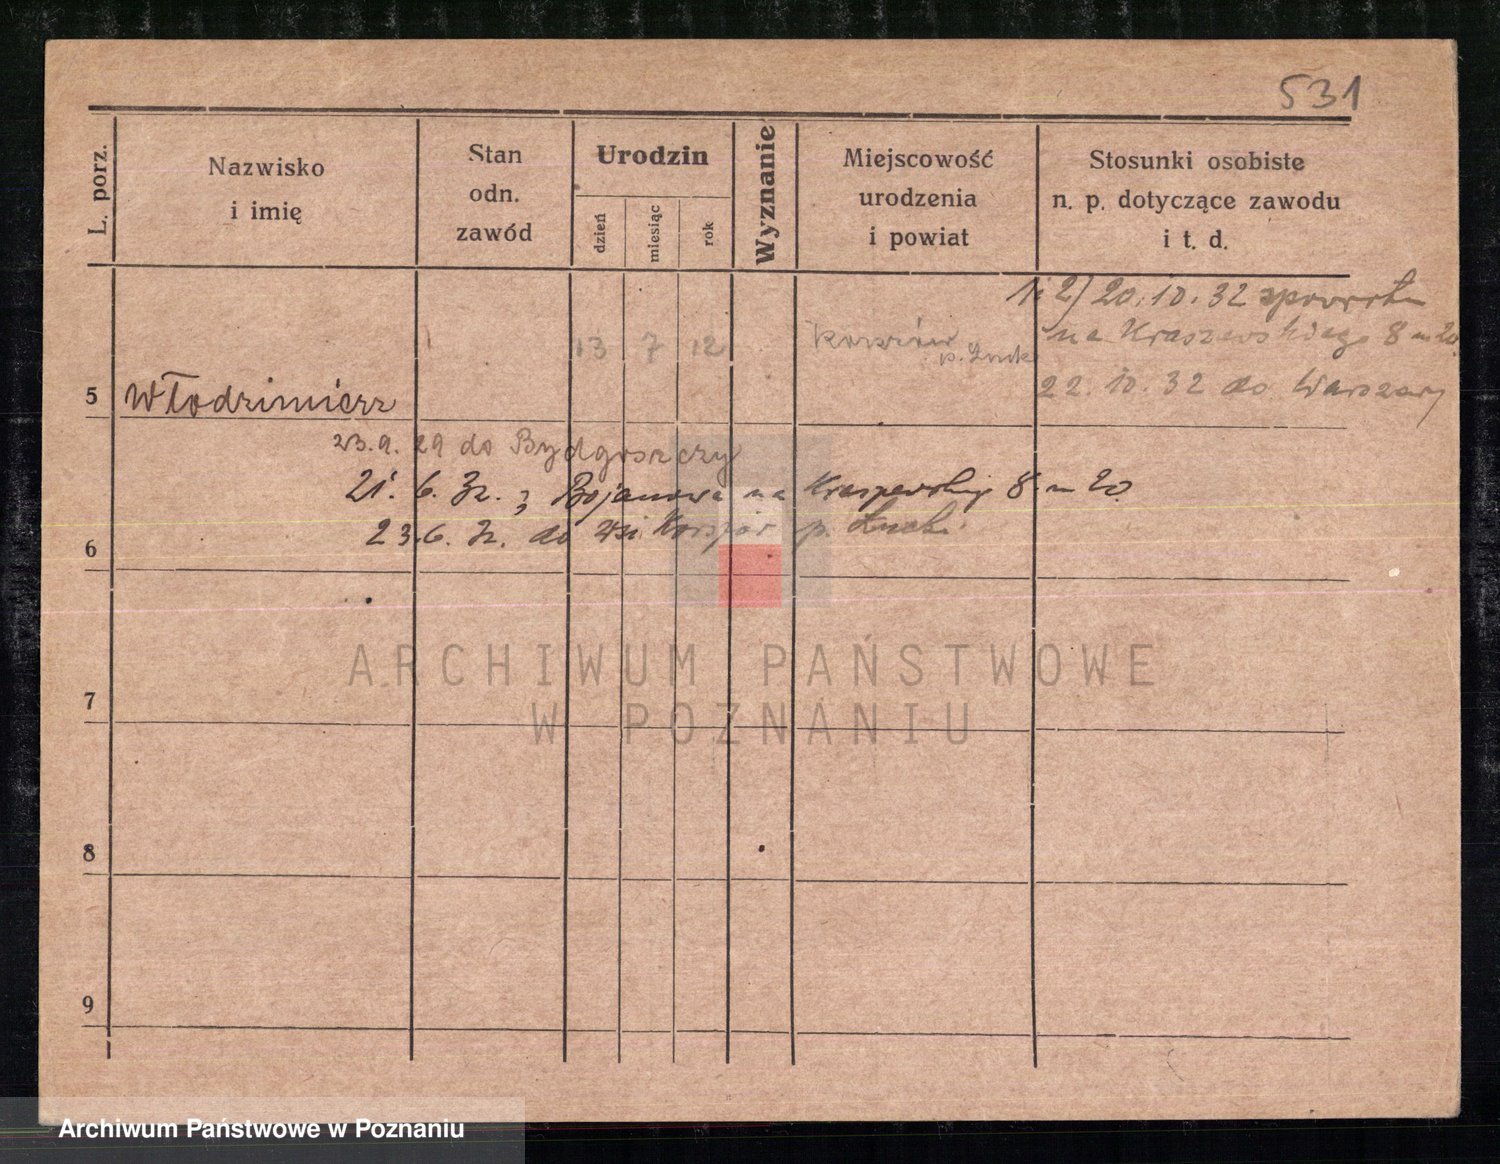 531
L. porz.
Nazwisko
i imię
Stan
odn.
zawód
Urodzin
dzień
miesiąc
rok
Wyznanie
Miejscowość
urodzenia
i powiat
Stosunki osobiste
n. p. dotyczące zawodu
i t. d.
1 i 2) 20.10.32 spowrotu
na Kraszewskiego 8 m 20.
13 7 12
p. Łuck
22.10.32 do Warszawy
5 Włodzimierz
23.9.29 do Bydgoszczy
21.6.32. z Bojanowa na Kraszewskiego 8 m 20.
23.6.32. do wsi p. Łuck.
6
ARCHIWUM PAŃSTWOWE
W POZNANIU
7
8
9
Archiwum Państwowe w Poznaniu